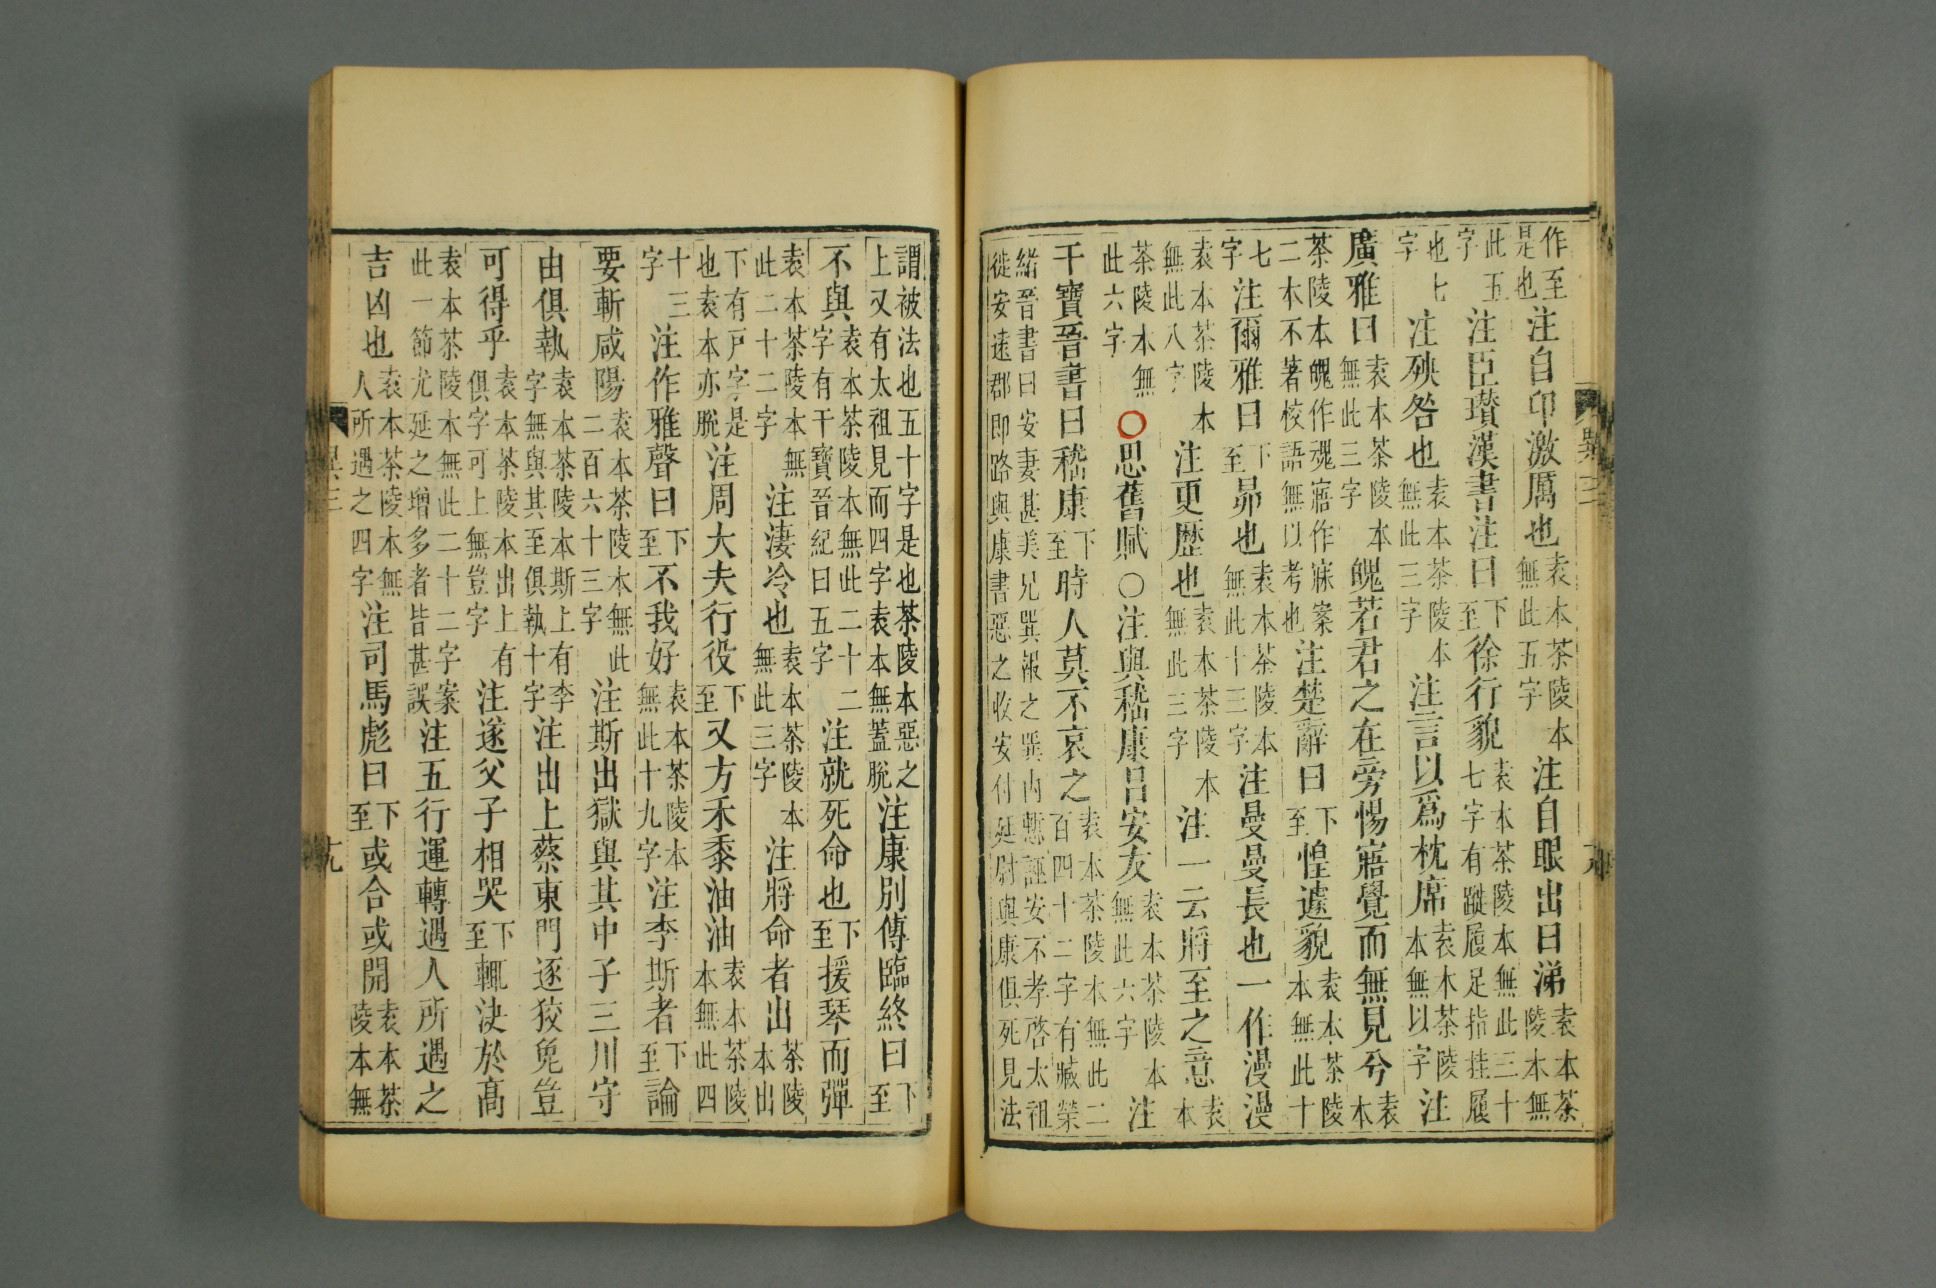 作至是也注自卬激厲也袁本茶陵本無此五字注自眼出曰涕袁本茶陵本無
此五字注臣瓚漢書注曰下至徐行貌袁本茶陵本無此三十七字有蹝履足指挂履
也七字注殃咎也袁本茶陵本無此三字注言以爲枕席袁本茶陵本無以字注
廣雅曰袁本茶陵本無此三字魄若君之在旁惕寤覺而無見兮袁本
茶陵本魄作魂寤作寐案二本不著校語無以考也注楚辭曰下至惶遽貌袁本茶陵本無此十
七字注爾雅曰下至昴也袁本茶陵本無此十三字注曼曼長也一作漫漫
袁本茶陵本無此八字注更歷也袁本茶陵本無此三字注一云將至之意袁本
茶陵本無此六字○思舊賦○注與嵇康呂安友袁本茶陵本無此六字注
干寶晉書曰嵇康下至時人莫不哀之袁本茶陵本無此二百四十二字有臧榮
緒晉書曰安妻甚美兄巽報之巽内慙誣安不孝啓太祖徙安遠郡即路與康書惡之收安付廷尉與康俱死見法
謂被法也五十字是也茶陵本惡之上又有太祖見而四字袁本無蓋脫注康別傳臨終曰下至
不與袁本茶陵本無此二十二字有干寶晉紀曰五字注就死命也下至援琴而彈
袁本茶陵本無此二十二字注淒冷也袁本茶陵本無此三字注將命者出茶陵本出
下有戸字是也袁本亦脫注周大夫行役下至又方禾黍油油袁本茶陵本無此四
十三字注作雅聲曰下至不我好袁本茶陵本無此十九字注李斯者下至論
要斬咸陽袁本茶陵本無此二百六十三字注斯出獄與其中子三川守
由俱執袁本茶陵本斯上有李字無與其至俱執十字注出上蔡東門逐狡兔豈
可得乎袁本茶陵本出上有俱字可上無豈字注遂父子相哭下至輒決於高
袁本茶陵本無此二十二字案此一節尤延之增多者皆甚誤注五行運轉遇人所遇之
吉凶也袁本茶陵本無人所遇之四字注司馬彪曰下至或合或開袁本茶陵本無
異三
十九